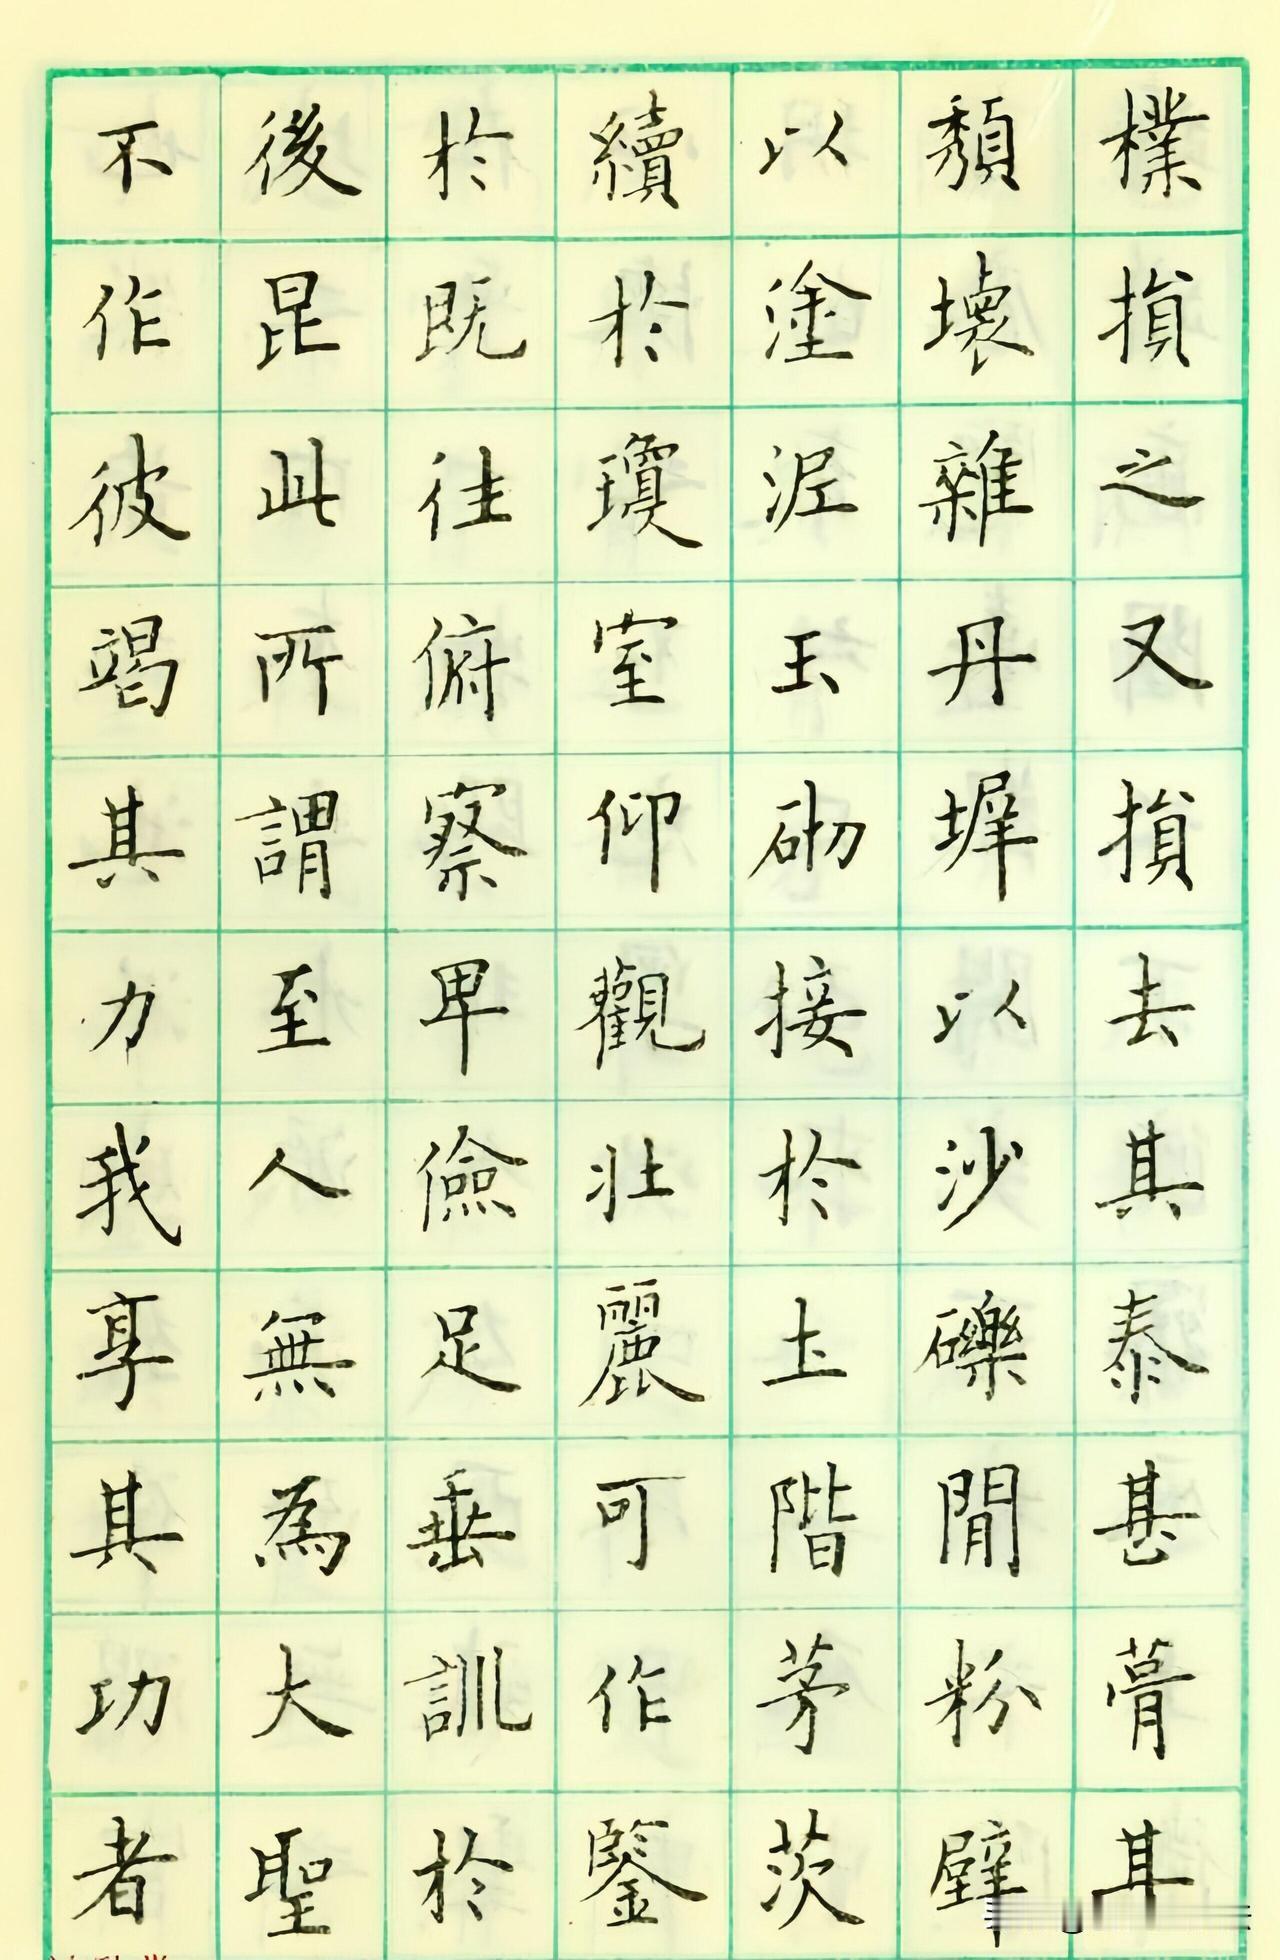 樸損之又損去其泰甚葺其
頹壞雜丹墀以沙礫閒粉壁
以塗泥玉砌接於土階茅茨
續於瓊室仰觀壯麗可作鑒
於既往俯察卑儉足垂訓於
後昆此所謂至人無為大聖
不作彼竭其力我享其功者